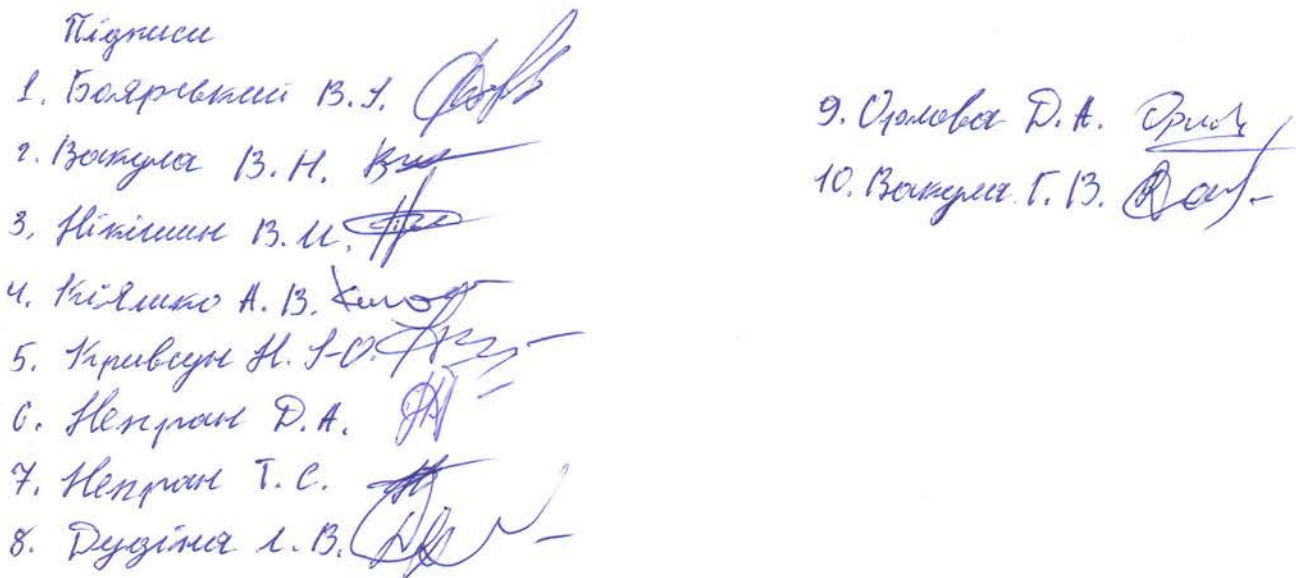 Підписи
1. Боярський В.І.
2. Вакула В.Н.
3. Нікішин В.И.
4. Кіяшко А.В.
5. Кривсун Н. І-О.
6. Непран Д.А.
7. Непран Т.С.
8. Дудіна Л.В.
9. Орлова Д.А.
10. Вакула Г.В.